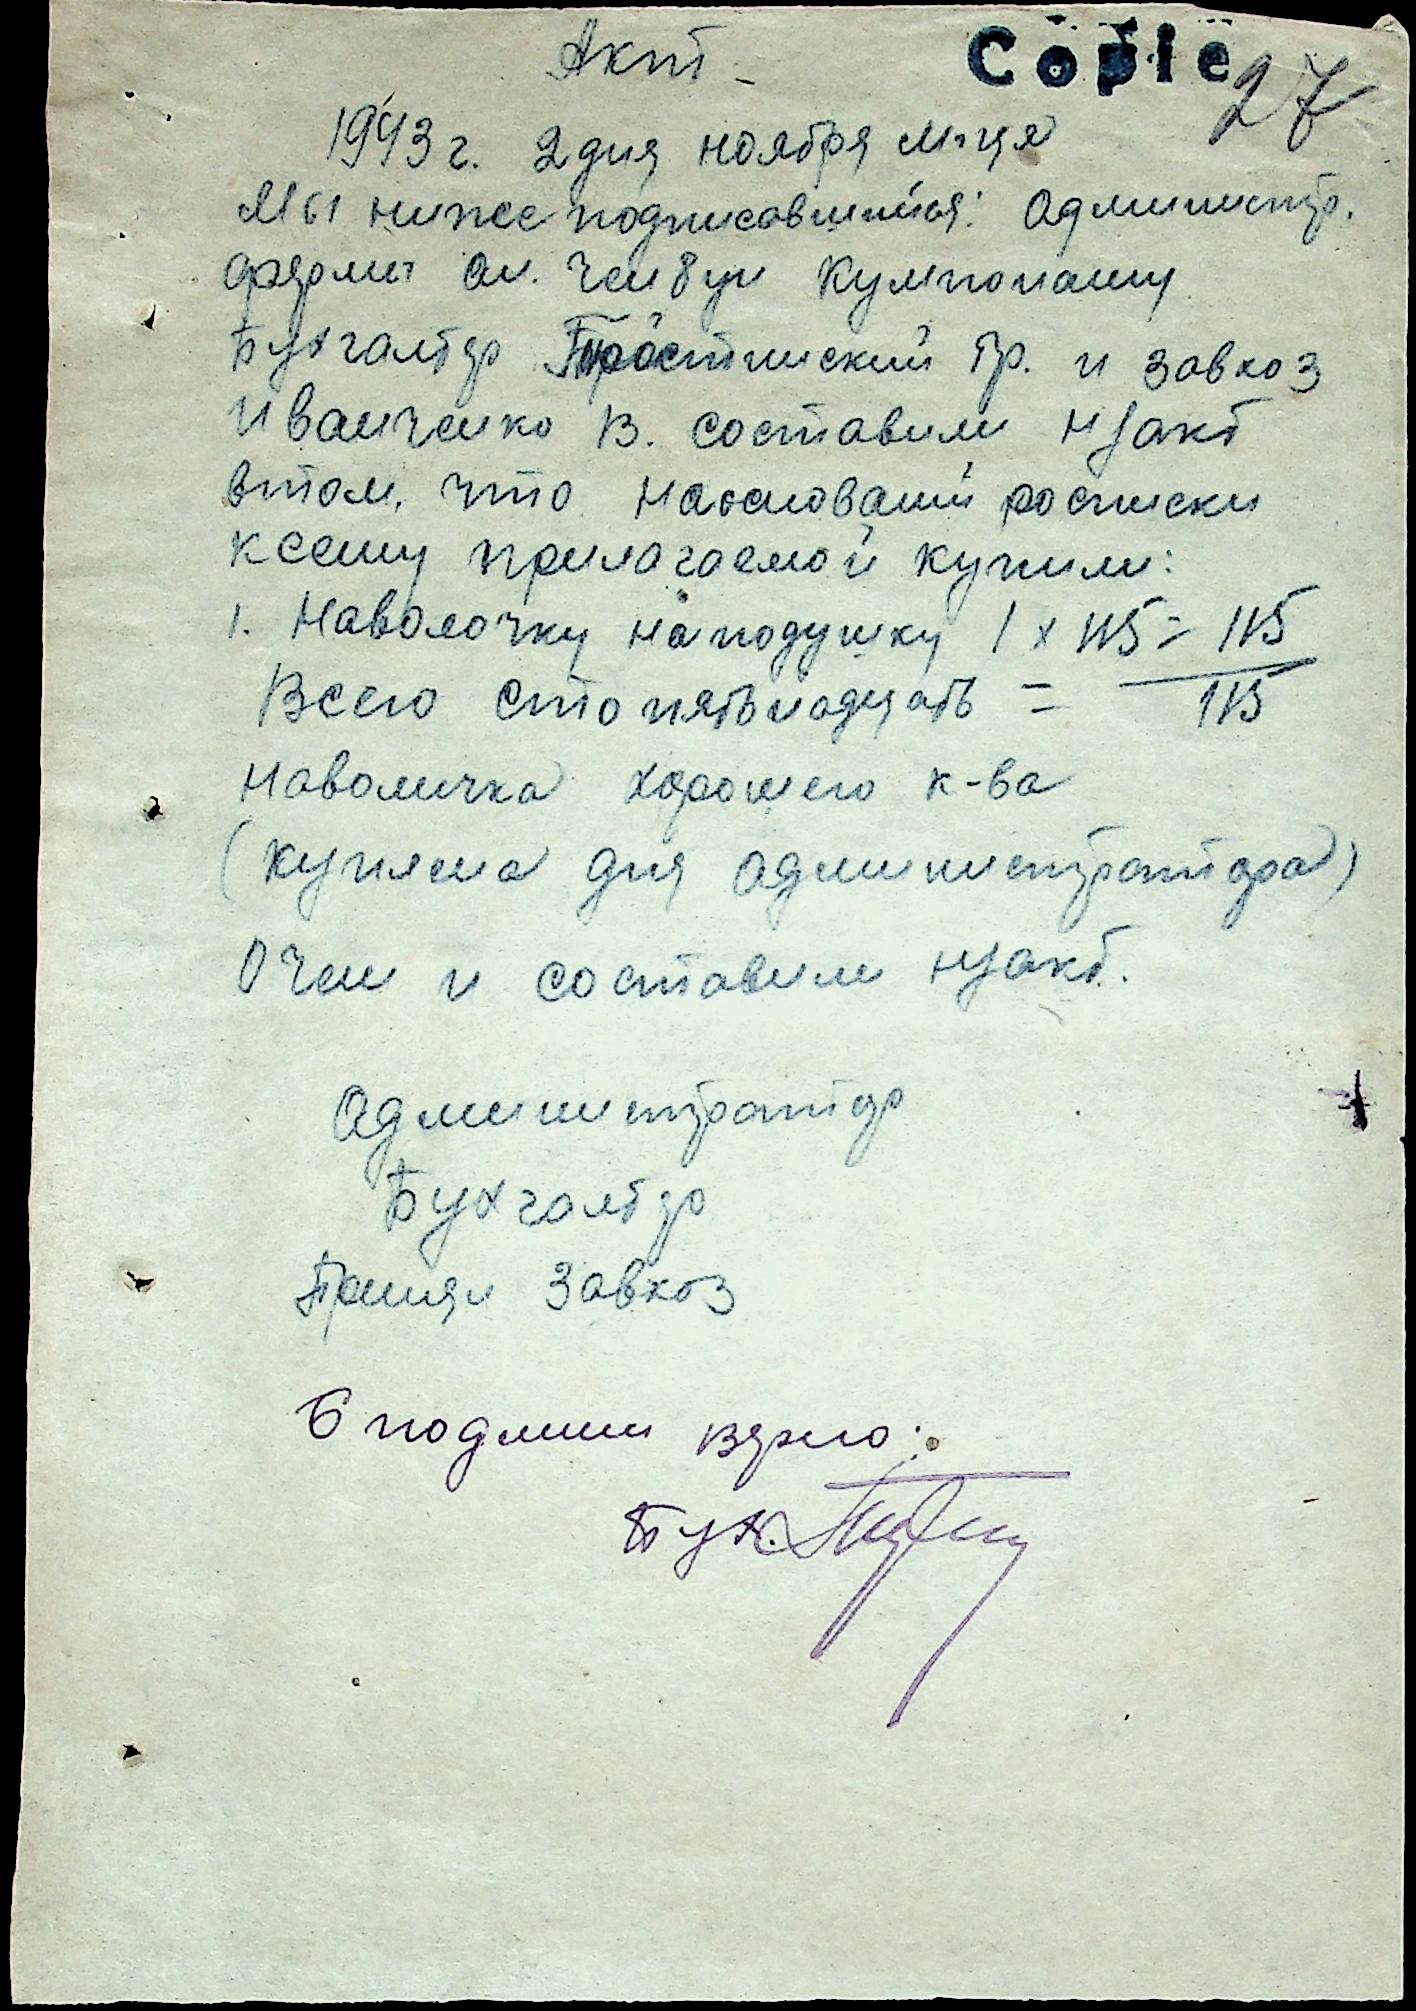 Акт
Copie
27
1943 г. 2 дня ноября м-ця
Мы ниже подписавшийся: Администр.
фермы
Бухгалтер Тростинский Гр. и завхоз
Иванченко В. составили н/акт
втом, что наосновании росписки
ксему прилагаемой купили:
1. Наволочку наподушку 1 х 115 = 115
Всего сто пятьнадцать = 115
Наволичка хорошего к-ва
(куплена для администратора)
Очем и составили н/акт.
Администратор
Бухгалтер
Принял Завхоз
С подлини верно:
Бух.